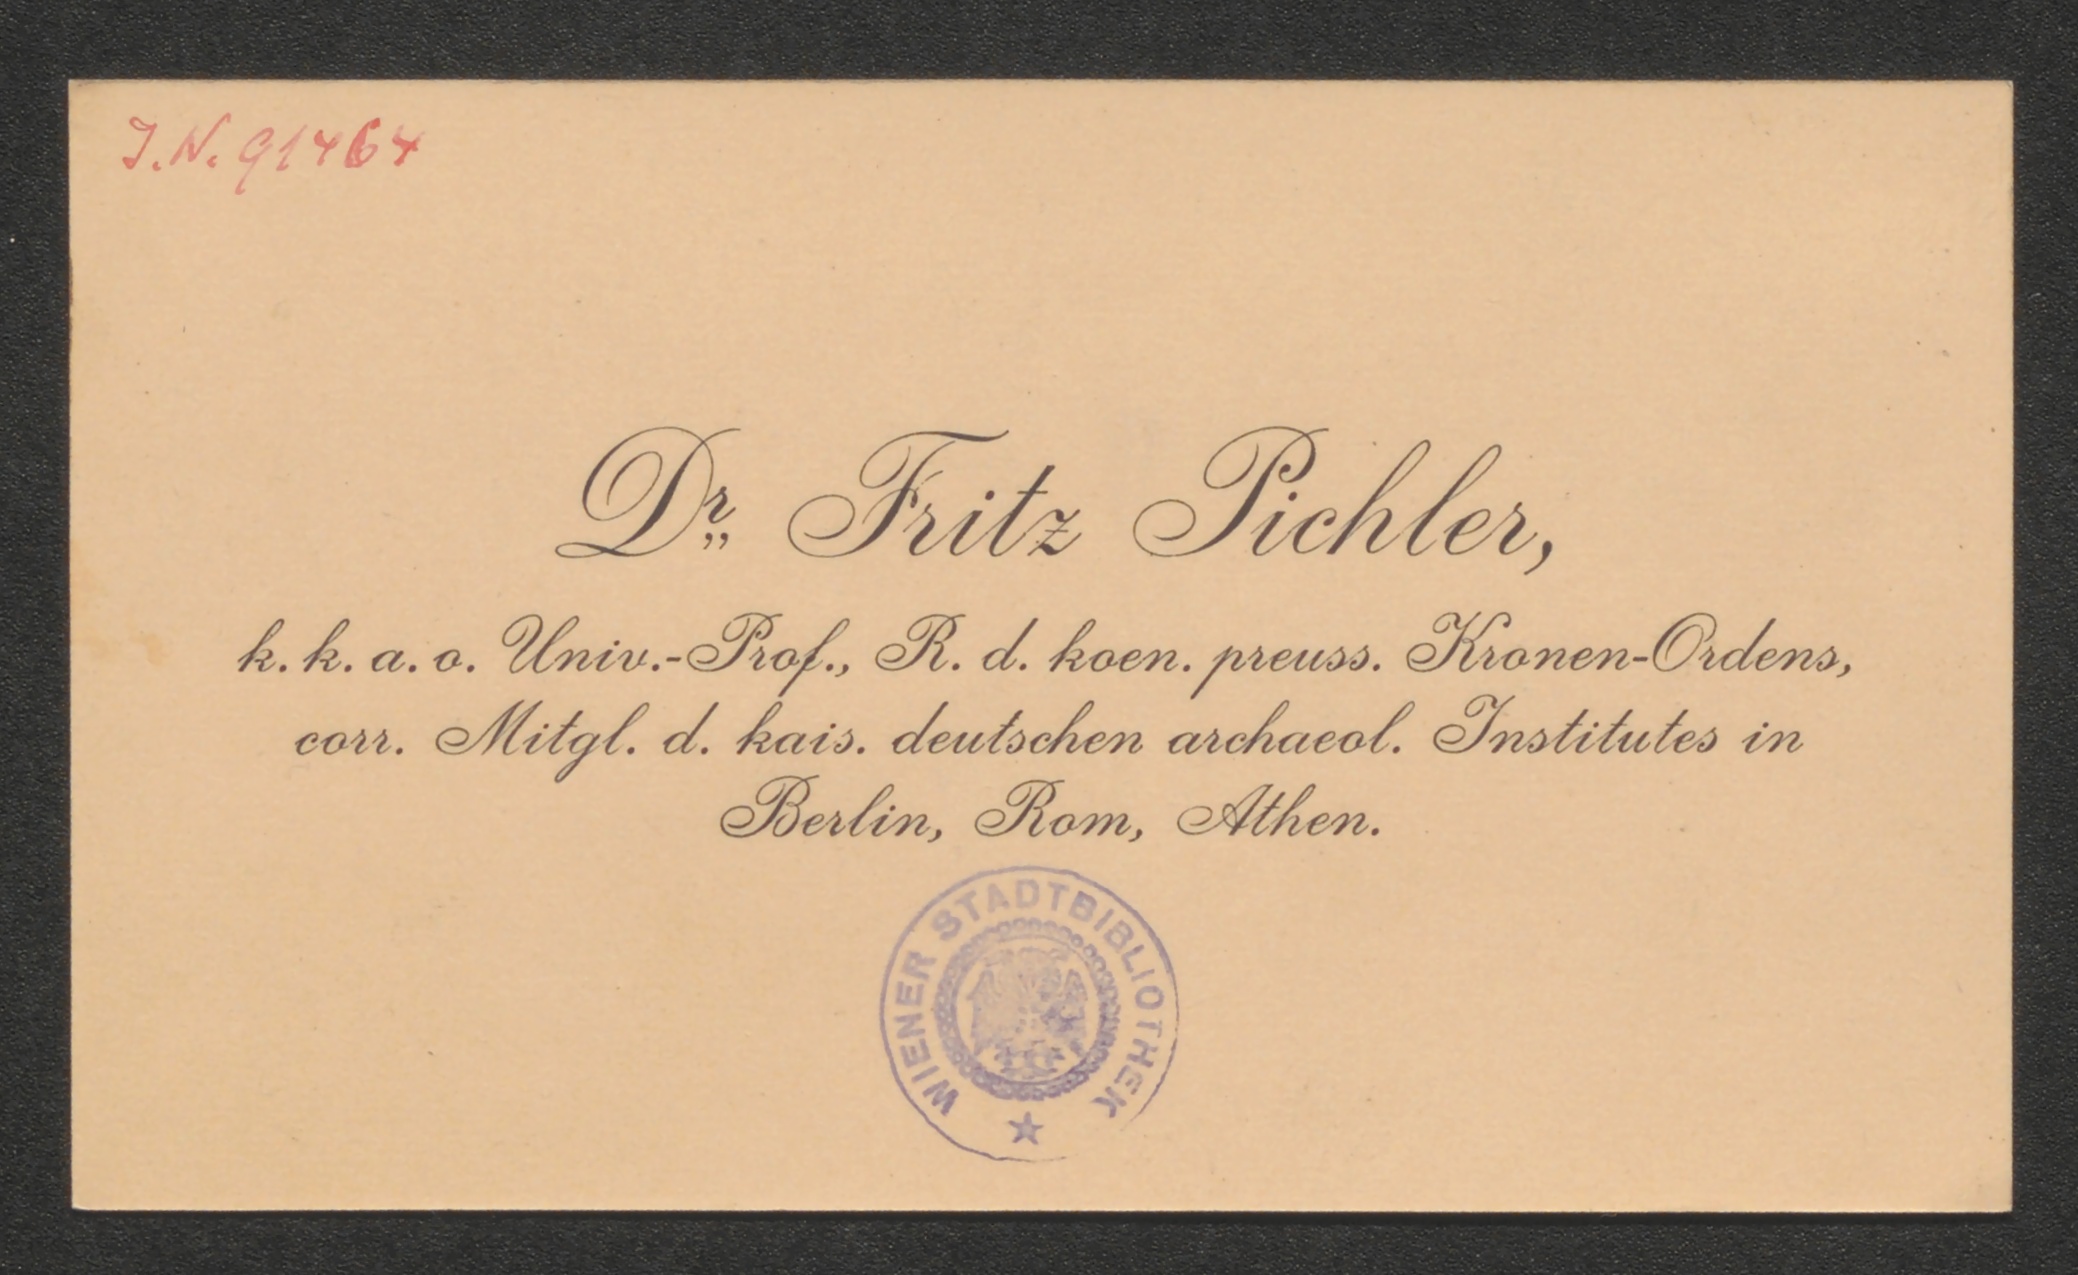 J.N. 91464
Dr. Fritz Pichler,
k. k. a. o. Univ.-Prof., R. d. koen. preuss. Kronen-Ordens,
corr. Mitgl. d. kais. deutschen archaeol. Institutes in
Berlin, Rom, Athen.
WIENER STADTBIBLIOTHEK